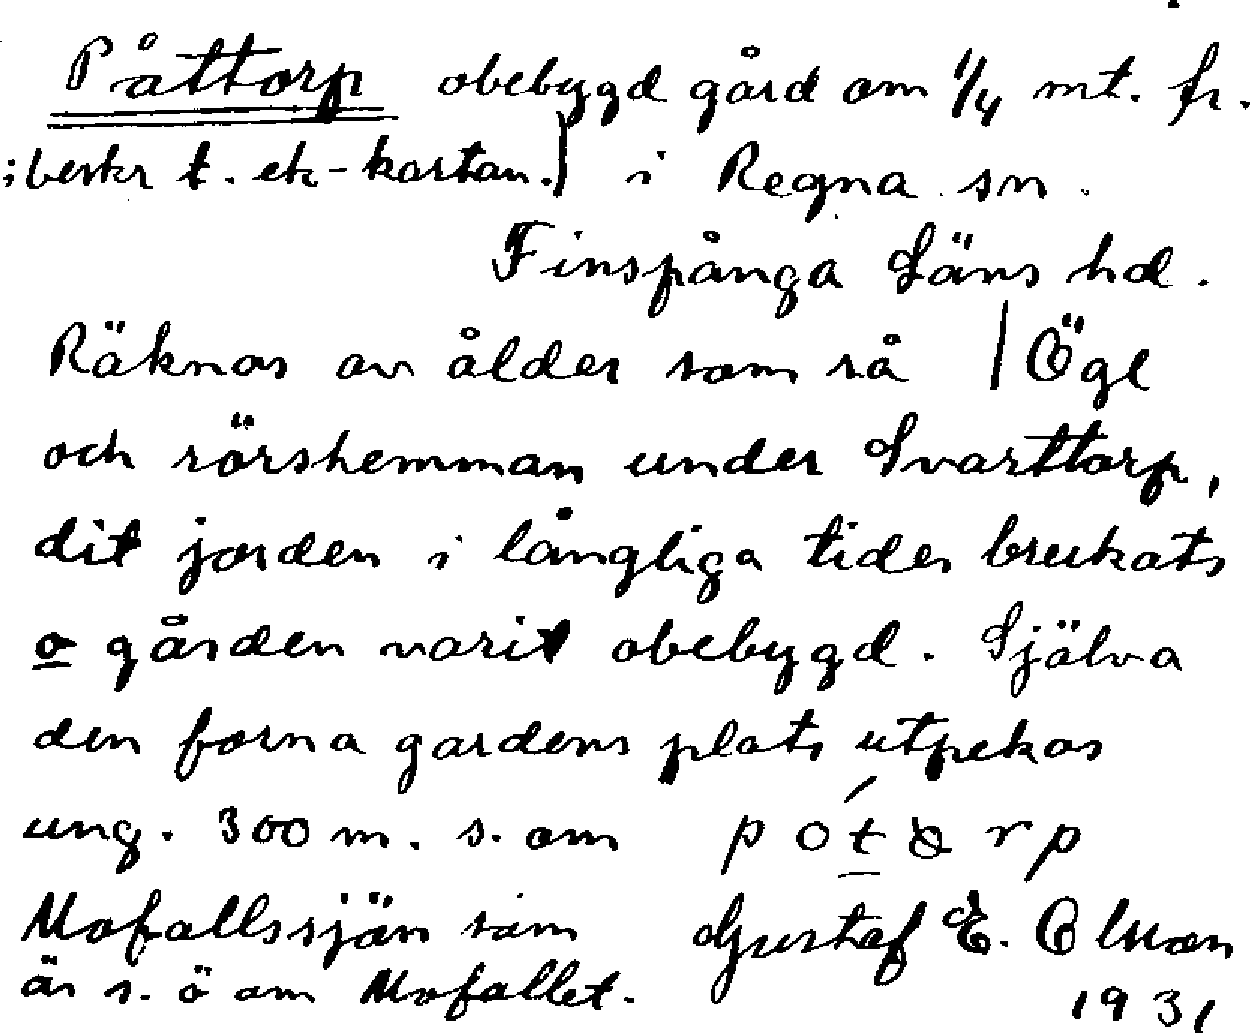 Påttorp obebygd gård om 1/4 mt. fr.
; beskr t. ek-kartan.) i Regna sn.
Finspånga Läns hd.
Räknas av ålder som rå | Ögl
och rörshemman under Svarttorp,
dit jorden i långliga tider brukats
o gården varit obebygd. Själva
den forna gardens plats utpekas
ung. 300 m. s. om
Mofallssjön som
är s. ö om Mofallet.
Gustaf E.
1931